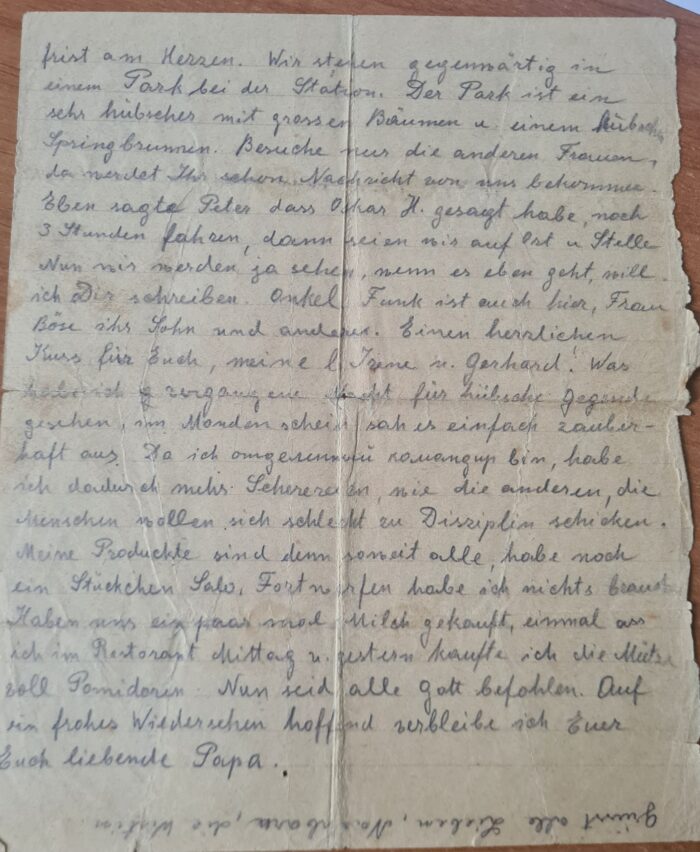 frist am Herzen. Wir stehen gegenwärtig in
einem Park bei der Station. Der Park ist ein
sehr hübscher mit grossen Bäumen u. einem
Springbrunnen. Besuche nur die anderen Frauen,
da werdet Ihr schon Nachricht von uns bekommen.
Eben sagte Peter dass Oskar H. gesagt habe, noch
3 Stunden fahren, dann seien wir auf Ort u Stelle
Nun wir werden ja sehen, wenn es eben geht, will
ich Dir schreiben. Onkel Funk ist auch hier, Frau
Böse ihr Sohn und andere. Einen herzlichen
Kuss für Euch, meine l. Irene u. Gerhard! Was
habe ich vergangene Nacht für hübsche Gegende
gesehen, im Monden schein sah es einfach zauber-
haft aus. Da ich командир bin, habe
ich dadurch mehr Scherereien, wie die anderen, die
Menschen wollen sich schlecht zu Disziplin schicken.
Meine Produckte sind denn soweit alle, habe noch
ein Stückchen Salo, Fortwerfen habe ich nichts
Haben uns ein paar mal Milch gekauft, einmal ass
ich im Restorant Mittag u. gestern kaufte ich die Mütze
voll Pomidoren. Nun seid alle Gott befohlen. Auf
ein frohes Wiedersehen hoffend verbleibe ich Euer
Euch liebende Papa.
Grüsst alle Lieben, die